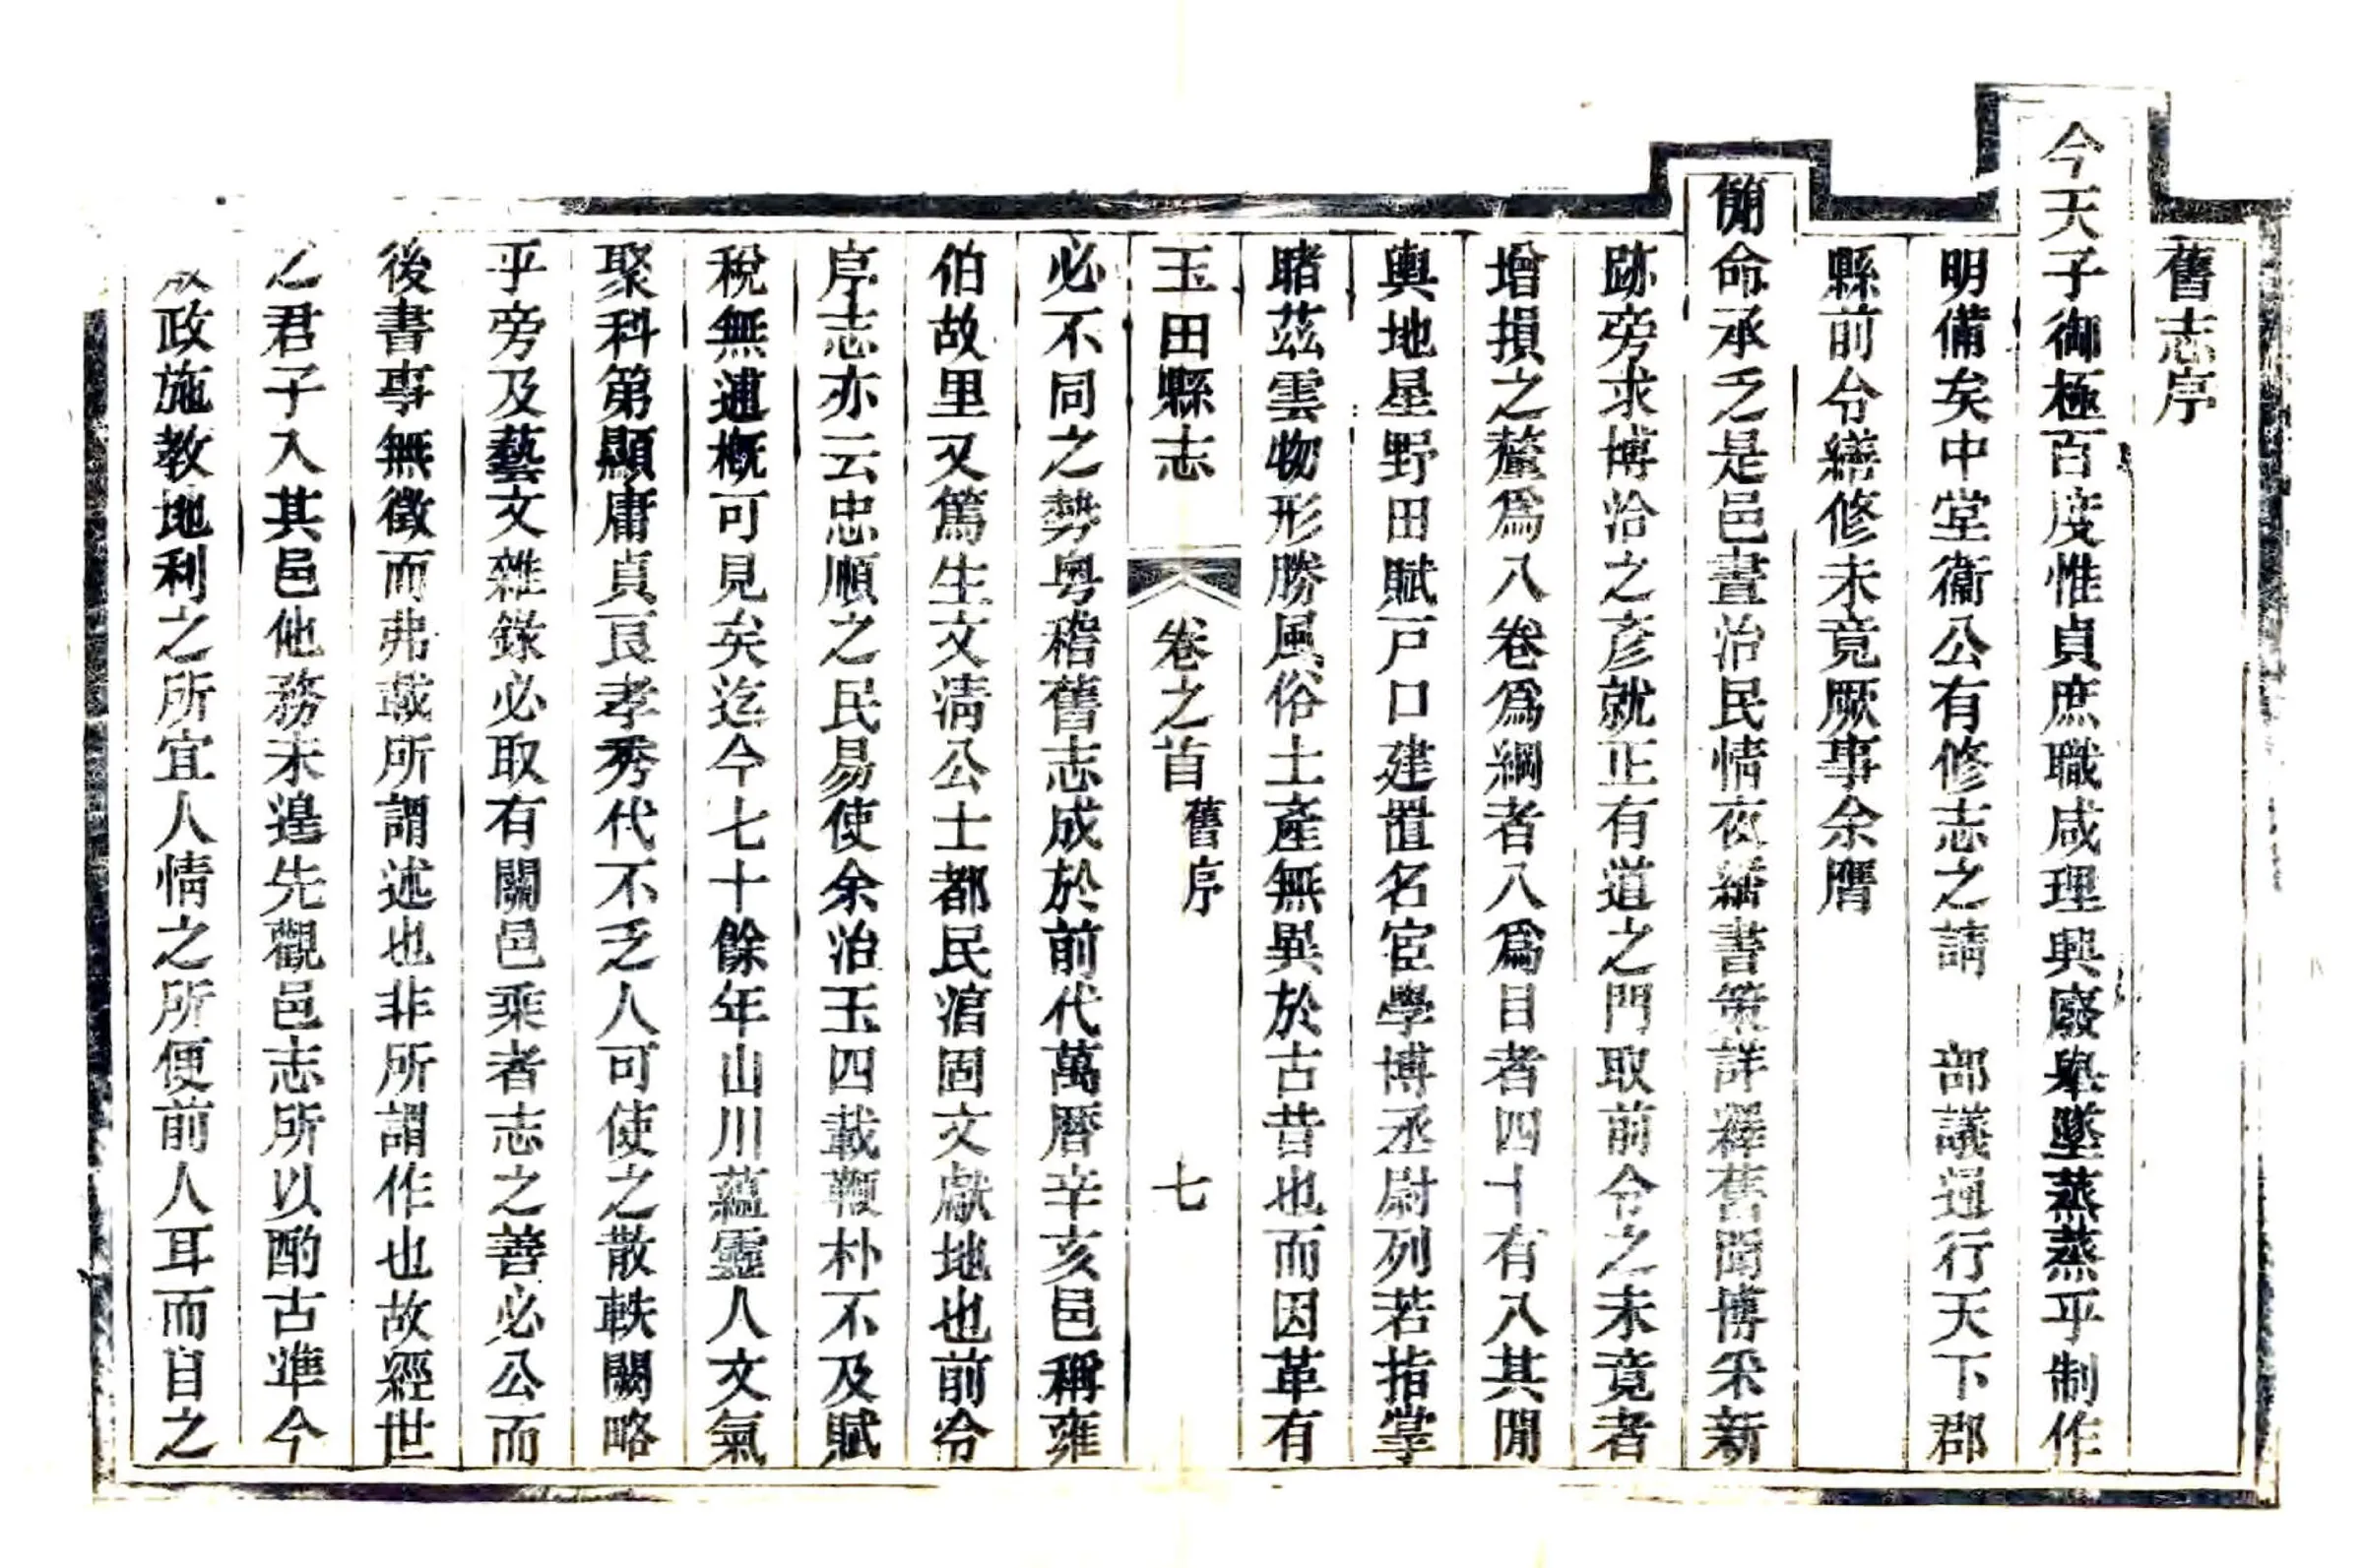 舊志序
今天子御極百度惟貞庶職咸理興廢舉墜蒸蒸乎制作
明備矣中堂衞公有修志之請　部議通行天下郡
縣前令繕修未竟厥事余膺
簡命承乏是邑晝治民情夜繙書策詳釋舊聞博采新
跡旁求博洽之彥就正有道之門取前令之未竟者
增損之釐爲八卷爲綱者八爲目者四十有八其閒
輿地星野田賦戸口建置名宦學博丞尉列若指掌
睹茲雲物形勝風俗土產無異於古昔也而因革有
玉田縣志　卷之首　舊序　七
必不同之勢粤稽舊志成於前代萬曆辛亥邑稱雍
伯故里又篤生文淸公士都民淯固文獻地也前令
序志亦云忠順之民易使余治玉四載鞭朴不及賦
稅無逋槪可見矣迄今七十餘年山川蘊靈人文氣
聚科第顯庸貞良孝秀代不乏人可使之散軼闕略
乎旁及藝文雜錄必取有關邑乘者志之善必公而
後書事無徵而弗載所謂述也非所謂作也故經世
之君子入其邑他務未遑先觀邑志所以酌古準今
政施敎地利之所宜人情之所便前人耳而目之